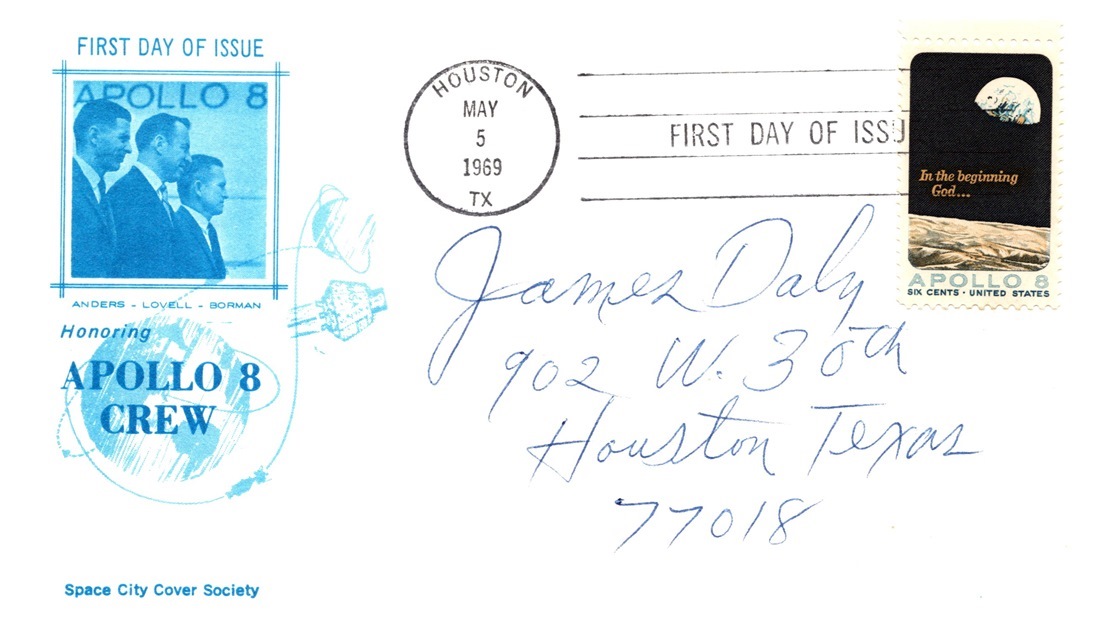 FIRST DAY OF ISSUE
APOLLO 8
ANDERS - LOVELL - BORMAN
Honoring
APOLLO 8
CREW
Space City Cover Society
HOUSTON
MAY
5
1969
TX
FIRST DAY OF ISSU
In the beginning
God...
APOLLO 8
SIX CENTS · UNITED STATES
James Daly
902 W. 30th
Houston Texas
77018